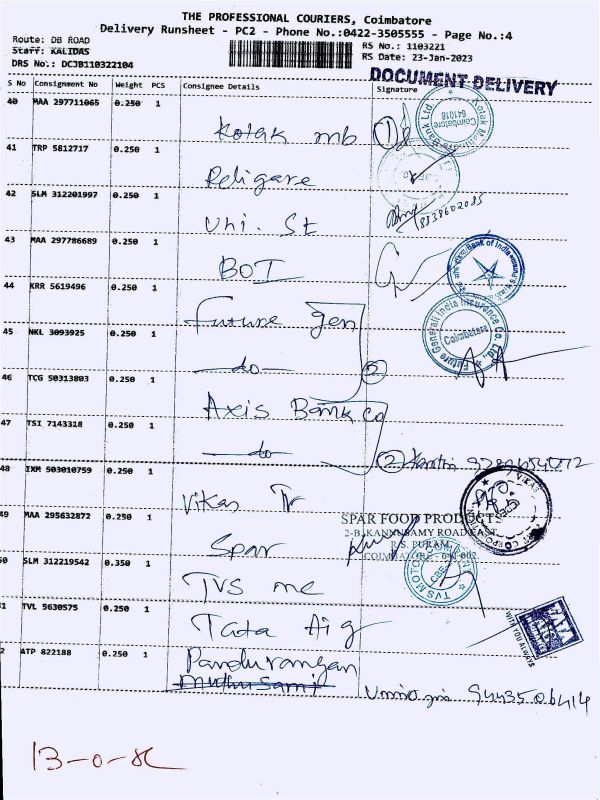 THE PROFESSIONAL COURIERS, Coimbatore
Delivery Runsheet - PC2 - Phone No.:0422-3505555 - Page No.:4
Route: DB ROAD
RS No.: 1103221
Staff: KALIDAS
RS Date: 23-Jan-2023
DRS No.: DCJB110322104
DOCUMENT DELIVERY
S No Consignment No Weight PCS Consignee Details Signature
40 MAA 297711065 0.250 1
Kotak mb
Kotak Mahindra Bank Ltd. Coimbatore 641018
41 TRP 5812717 0.250 1
Religare
42 SLM 312201997 0.250 1
Uni. St
8838602085
43 MAA 297786689 0.250 1
BOI
Bank of India
44 KRR 5619496 0.250 1
Future Gen
Future Generali India Insurance Co. Ltd. Coimbatore
45 NKL 3093925 0.250 1
-do-
2
46 TCG 50313803 0.250 1
Axis Bank
47 TSI 7143318 0.250 1
-do-
2
48 IXM 503010759 0.250 1
Vikas Tr
VIKAS
49 MAA 295632872 0.250 1
Spar
SPAR FOOD PRODUCTS
2-B, KANNUSAMY ROAD EAST
R.S. PURAM,
COIMBATORE - 641 002
50 SLM 312219542 0.350 1
TVS mc
TVS MOTOR COMPANY
51 TVL 5630575 0.250 1
Tata Aig
WITH YOU ALWAYS
52 ATP 822188 0.250 1
Pandurangan
Muthusami
9443506414
13-0-8K